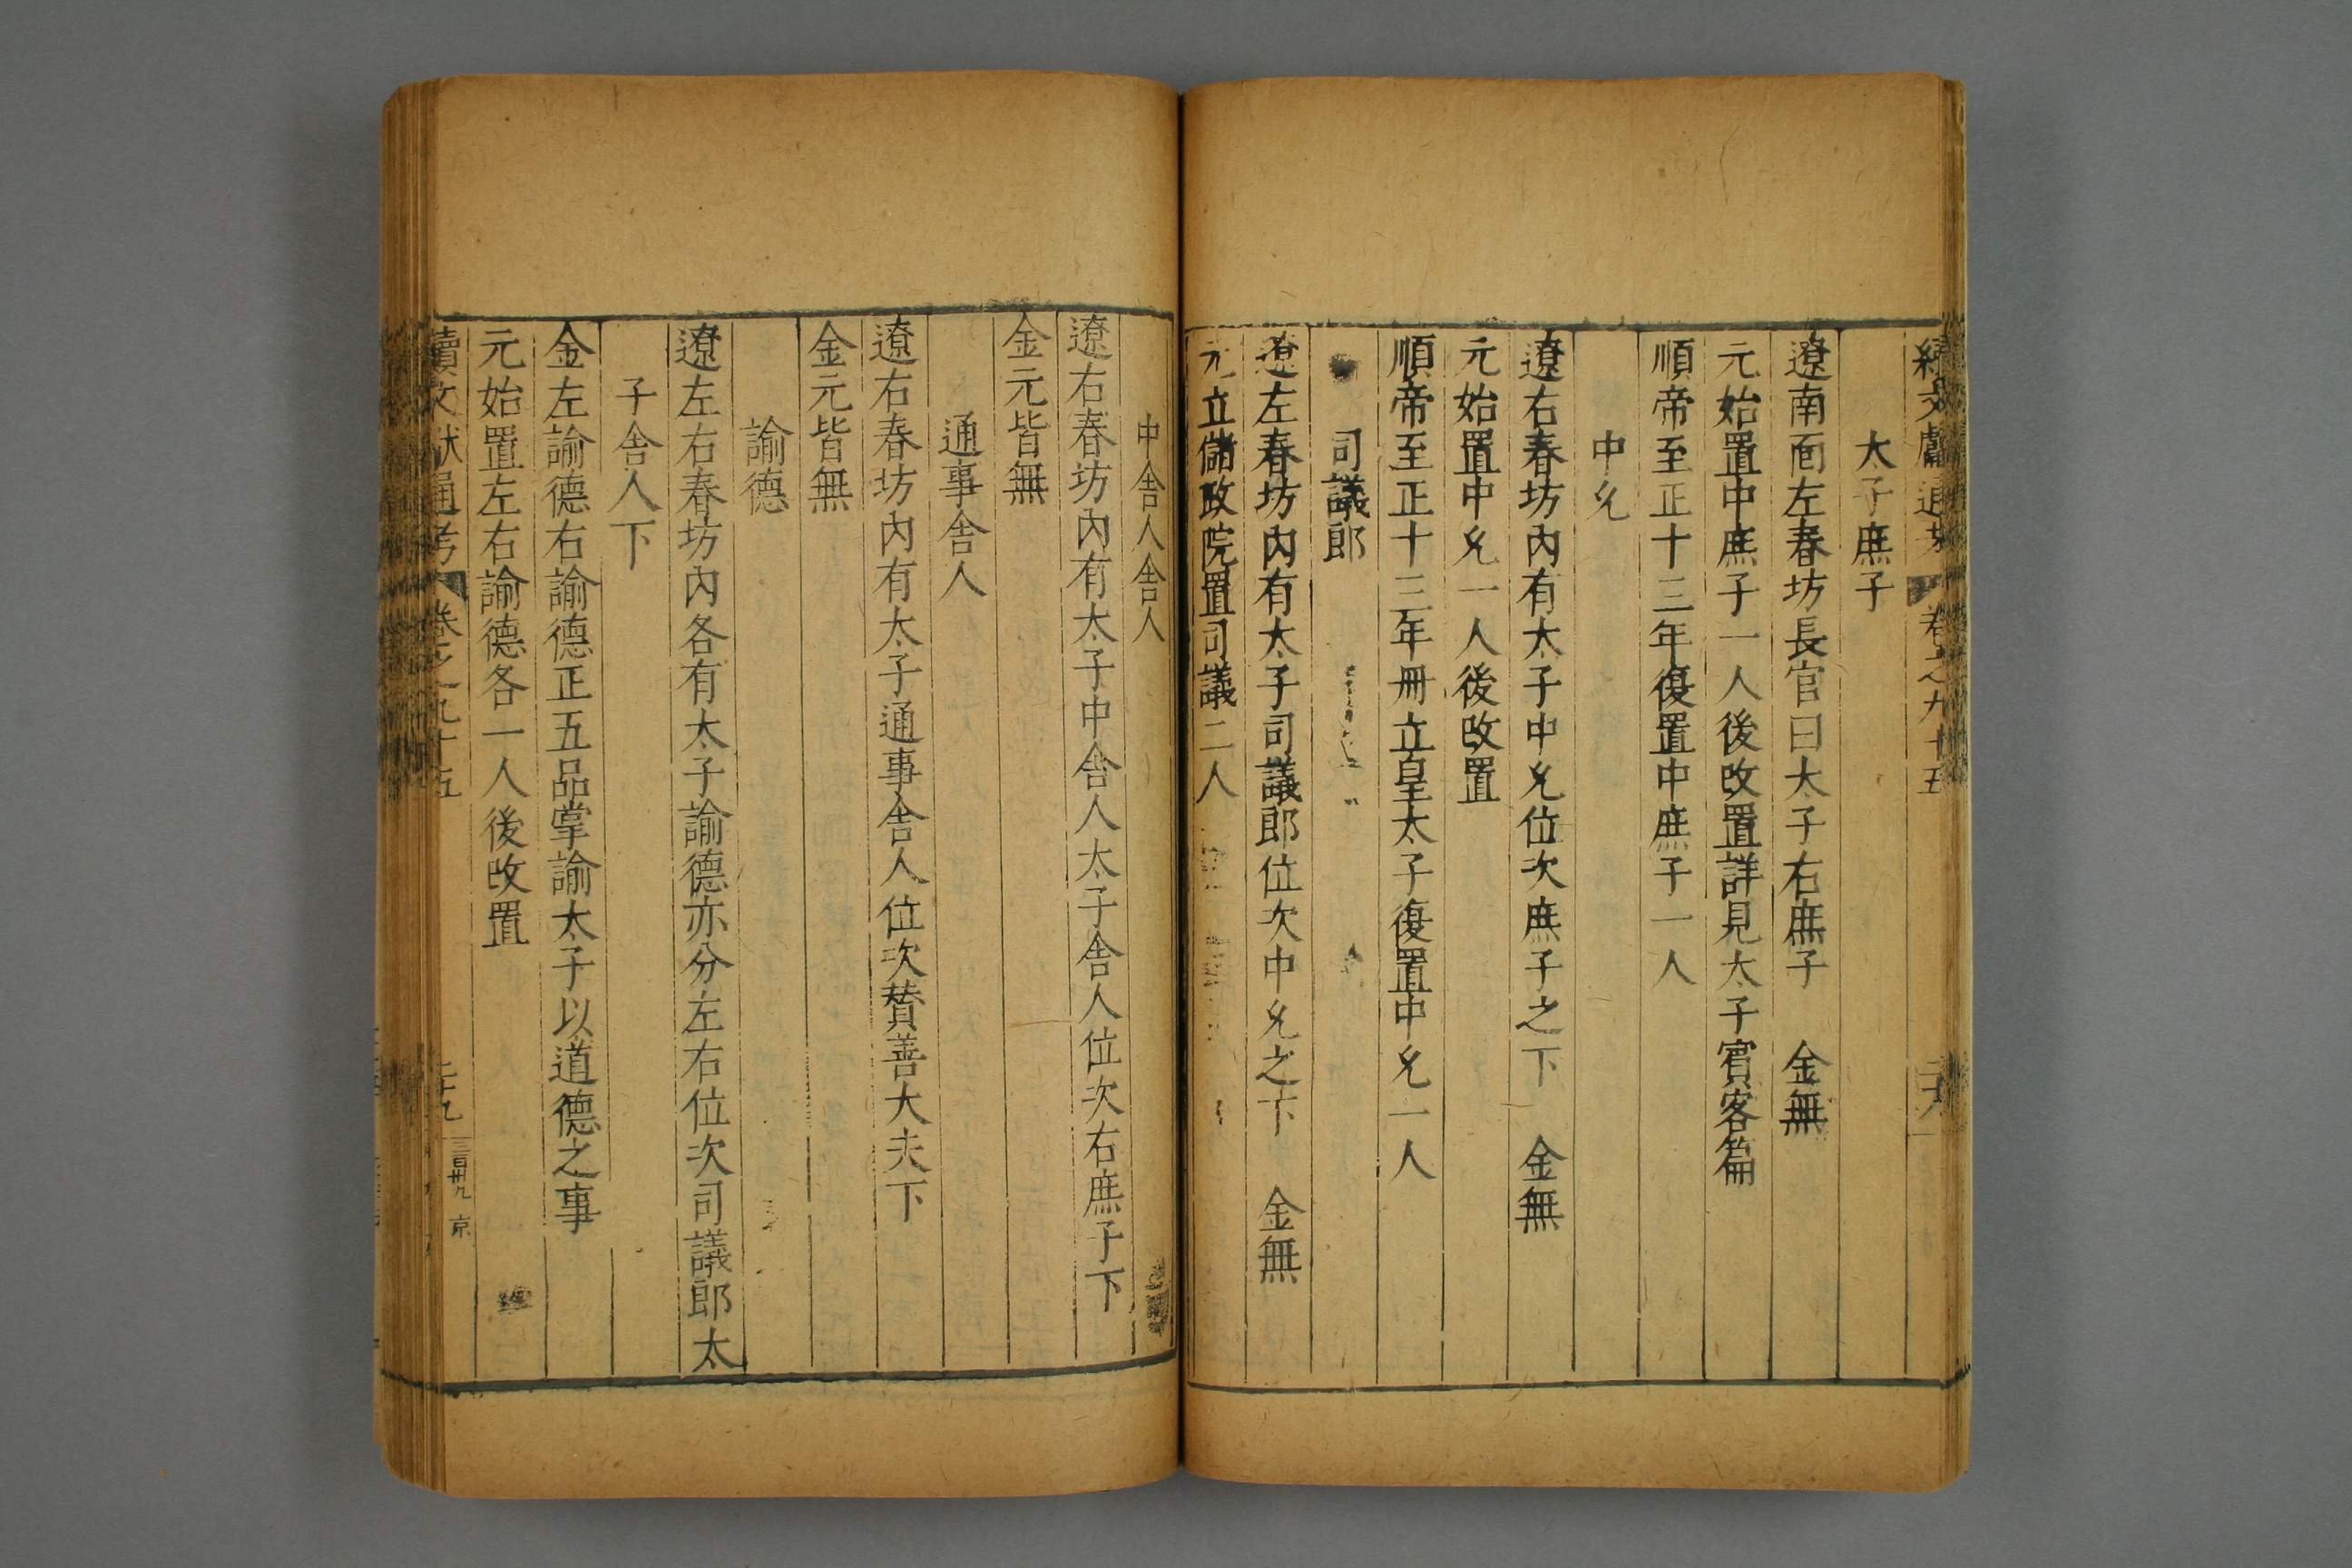 續文獻通考 卷之九十五
太子庶子
遼南面左春坊長官曰太子右庶子 金無
元始置中庶子一人後改置詳見太子賓客篇
順帝至正十三年復置中庶子一人
中允
遼右春坊內有太子中允位次庶子之下 金無
元始置中允一人後改置
順帝至正十三年冊立皇太子復置中允一人
司議郎
遼左春坊內有太子司議郎位次中允之下 金無
元立儲政院置司議二人
中舍人舍人
遼右春坊內有太子中舍人太子舍人位次右庶子下
金元皆無
通事舍人
遼右春坊內有太子通事舍人位次賛善大夫下
金元皆無
諭德
遼左右春坊內各有太子諭德亦分左右位次司議郎太
子舍人下
金左諭德右諭德正五品掌諭太子以道德之事
元始置左右諭德各一人後改置
續文獻通考 卷之九十五 三百卅九 京